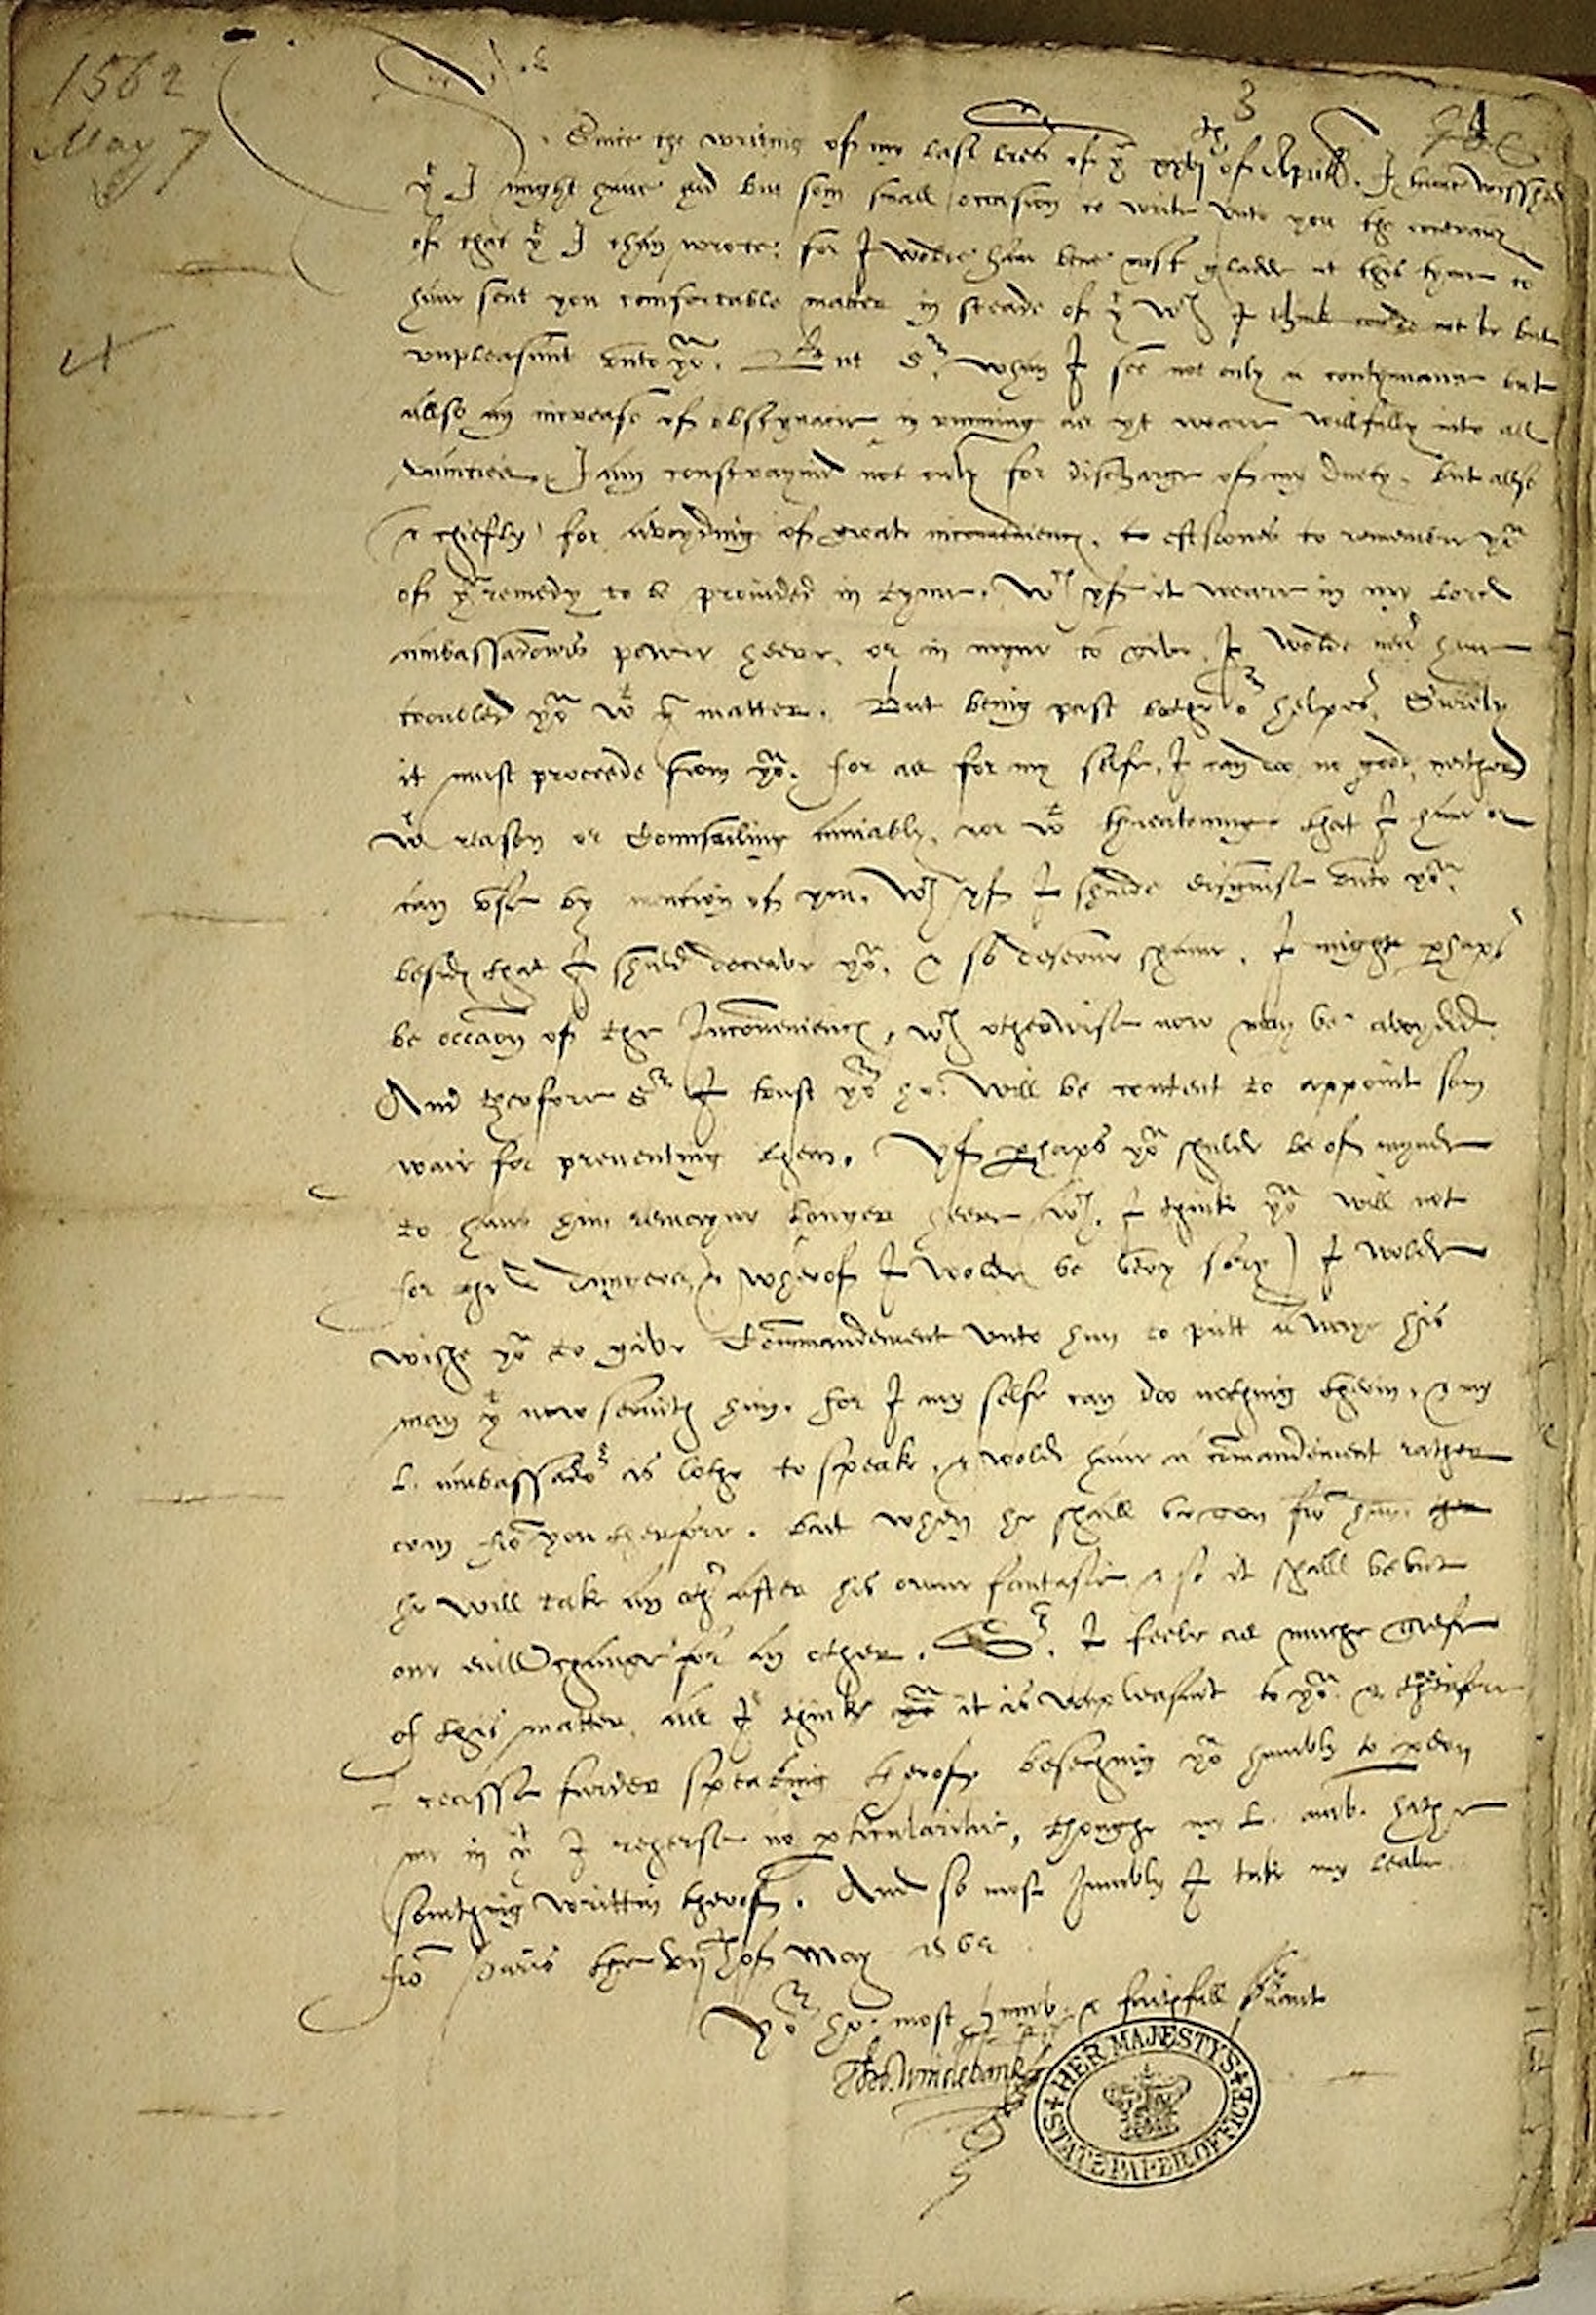 1562
May 7
3
Since the writing of my last lres of ye xxvjth of Aprill. I have wisshed
yt I might have had but som small occasion to write unto you the contrary
of that yt I then wrote. for I wolde have bene most gladde at this tyme to
have sent you comfortable matter in steade of yt wch I think coulde not be but
unpleasaunt unto yor. But Sr, when I see not only a contynuance but
allso an increase of obstynacie in running as yt weare willfully into all
vanities. I am constrayned not only for discharge of my duety. but allso
& chiefly for avoyding of greate inconvenience. to eftsones to remember yor
of ye remedy to be provided in tyme. wch yf it weare in my Lord
ambassadores power heere, or in myne to give, I wolde not have
troubled yor wt ye matter. But being past bothe or helpes, Surely
it must proceede from yor. for as for my selfe, I can do no good, neither
wt reason or Counsailing amiably, nor wt threatening that I have or
can use by mention of you. wch yf I shulde disguise unto yor,
besides that I shuld deceave yor, & so deserve shame, I might phaps
be occaon of the Inconvenience, wch otherwise now may be avoyded.
And therfore Sr I trust yor ho. will be content to appoint som
waie for preventing them. Yf phaps yor shulde be of mynde
to have him remayne longer heere (wch. I thinke yor will not
for the daungers, wherof I wolde be very sory) I wolde
wishe yor to give Commandement unto him to putt awaye his
man yt now servith him. for I my selfe can doo nothing therin, & my
L. ambassador is lothe to speake, & wold have a comandement rather
com fro you therfore. but when he shall be gon fro him. the
he will take an othr after his owne fantasie & so it shall be but
one evill change for an other. Sr. I feele as muche grefe
of this matter, as I thinke yor it is unpleasant to yor & therfore
I ceasse furder speaking therof. beseching yor humbly to pdon
me in yt I reherse no pticularitie, thoughe my L. amb. hathe
somthing written therof. And so most humbly I take my leave
fro Paris the vijth of May 1562.
Yor ho. most humb. & faithfull svant
Tho. Windebank
HER MAJESTYS STATE PAPER OFFICE